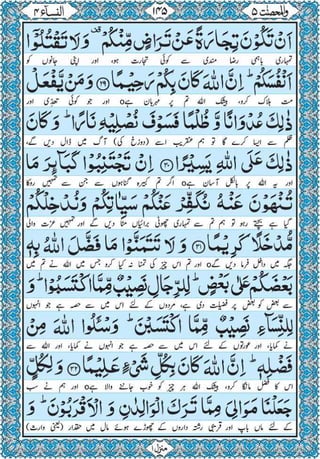 النسآء ٤ ١٣٥ والمحصنت ٥
اَنْ تَكُوْنَ تِجَارَةً عَنْ تَرَاضٍ مِّنْكُمْ ۟ وَلَا تَقْتُلُوْۤا
تمہاری باہمی رضا مندی سے کوئی تجارت ہو، اور اپنی جانوں کو
اَنْفُسَكُمْ ؕ اِنَّ اللّٰهَ كَانَ بِكُمْ رَحِيْمًا ﴿۲۹﴾ وَمَنْ يَّفْعَلْ
مت ہلاک کرو، بیشک اللہ تم پر مہربان ہے o اور جو کوئی تعدی اور
ذٰلِكَ عُدْوَانًا وَّ ظُلْمًا فَسَوْفَ نُصْلِيْهِ نَارًا ؕ وَكَانَ
ظلم سے ایسا کرے گا تو ہم عنقریب اسے (دوزخ کی) آگ میں ڈال دیں گے،
ذٰلِكَ عَلَى اللّٰهِ يَسِيْرًا ﴿۳۰﴾ اِنْ تَجْتَنِبُوْا كَبَآئِرَ مَا
اور یہ اللہ پر بالکل آسان ہے o اگر تم کبیرہ گناہوں سے جن سے تمہیں روکا
تُنْهَوْنَ عَنْهُ نُكَفِّرْ عَنْكُمْ سَيِّاٰتِكُمْ وَنُدْخِلْكُمْ
گیا ہے بچتے رہو تو ہم تم سے تمہاری چھوٹی برائیاں مٹا دیں گے اور تمہیں عزت والی
مُّدْخَلًا كَرِيْمًا ﴿۳۱﴾ وَلَا تَتَمَنَّوْا مَا فَضَّلَ اللّٰهُ بِهٖ
جگہ میں داخل فرما دیں گے o اور تم اس چیز کی تمنا نہ کیا کرو جس میں اللہ نے تم میں
بَعْضَكُمْ عَلٰى بَعْضٍ ؕ لِلرِّجَالِ نَصِيْبٌ مِّمَّا اكْتَسَبُوْا ؕ وَ
سے بعض کو بعض پر فضیلت دی ہے، مردوں کے لئے اس میں سے حصہ ہے جو انہوں
لِلنِّسَآءِ نَصِيْبٌ مِّمَّا اكْتَسَبْنَ ؕ وَسْـَٔلُوا اللّٰهَ مِنْ
نے کمایا، اور عورتوں کے لئے اس میں سے حصہ ہے جو انہوں نے کمایا، اور اللہ سے
فَضْلِهٖ ؕ اِنَّ اللّٰهَ كَانَ بِكُلِّ شَيْءٍ عَلِيْمًا ﴿۳۲﴾ وَلِكُلٍّ
اس کا فضل مانگا کرو، بیشک اللہ ہر چیز کو خوب جاننے والا ہے o اور ہم نے سب
جَعَلْنَا مَوَالِيَ مِمَّا تَرَكَ الْوَالِدٰنِ وَ الْاَقْرَبُوْنَ ؕ وَ
کے لئے ماں باپ اور قریبی رشتہ داروں کے چھوڑے ہوئے مال میں حقدار (یعنی وارث)
منزل ١